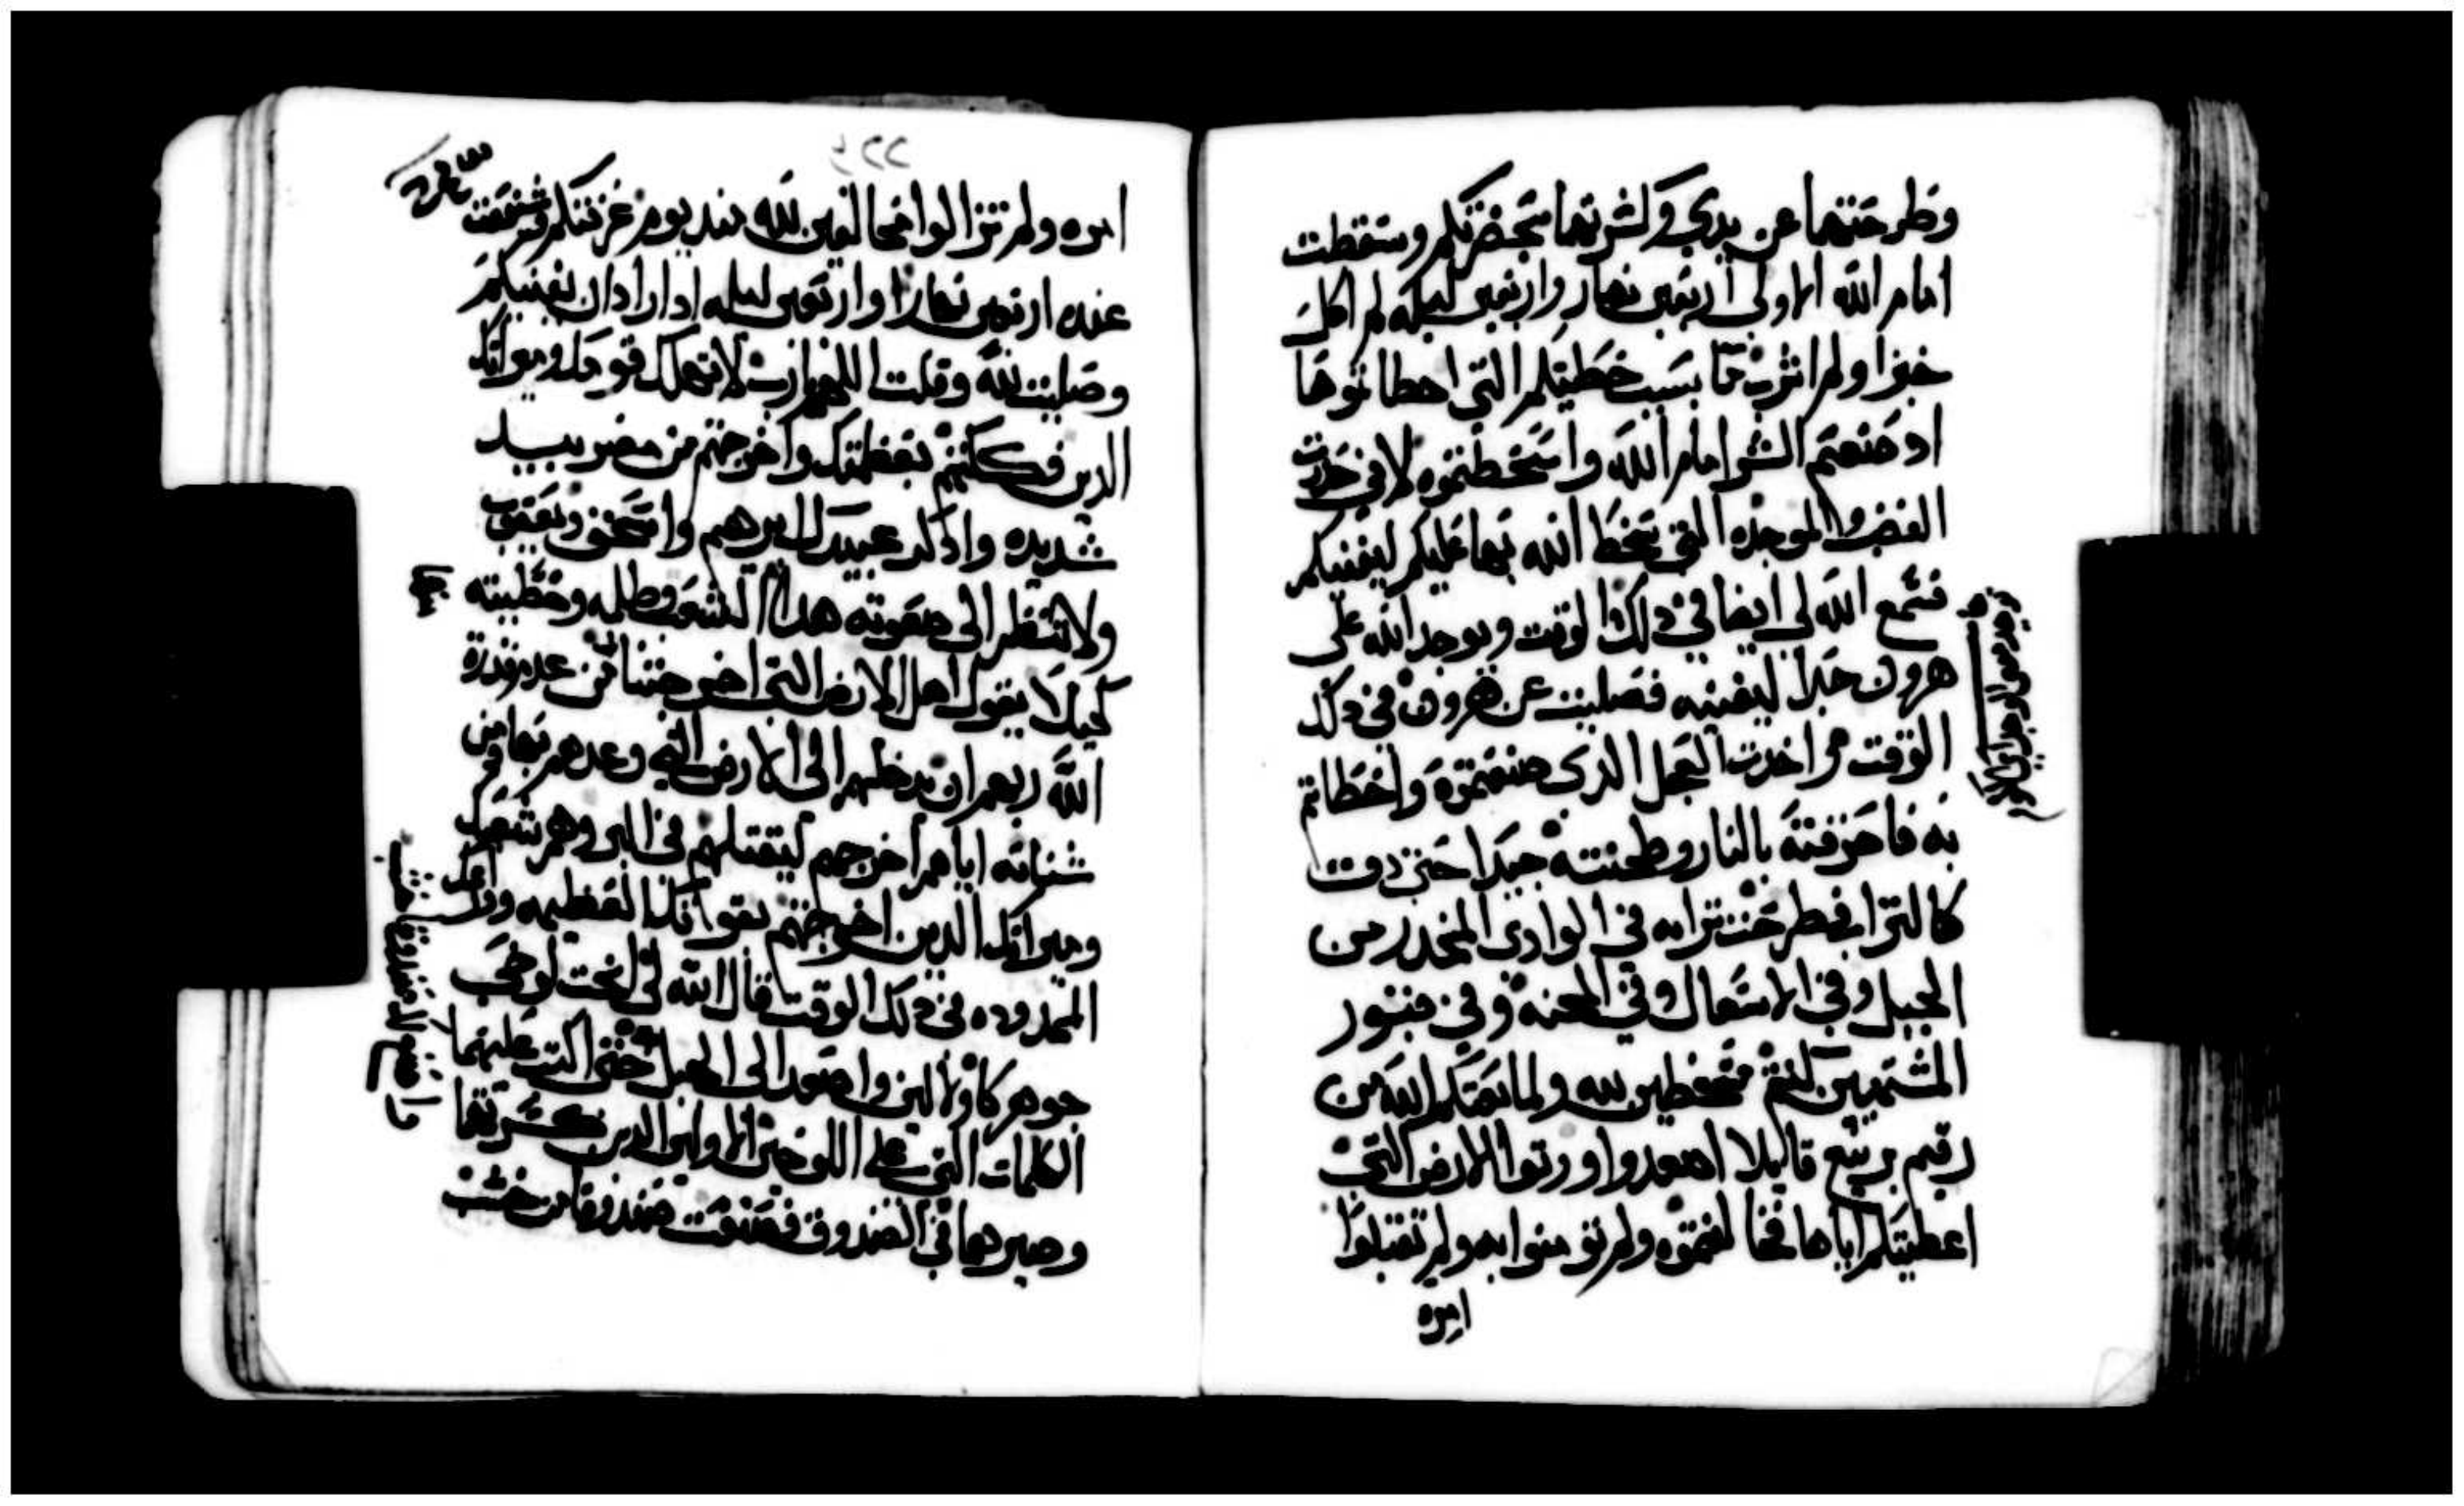 وطرحتهما عن يدي وكسرتهما بحضرتكم وسقطت
امام الله الاولى اربعين نهار واربعين ليله لم اكل
خبزا ولم اشرب ما بسبب خطيتكم التي اخطاتوها
اد صنعتم الشر امام الله واسخطتموه لاني خدرت
الغضب والموجده التي سخط الله بها عليكم ليفنيكم
فسمع الله لي ايضا في ذلك الوقت ووجد الله على
هرون جدا ليفنيه فصليت عن هرون في ذلك
الوقت اخدت العجل الدى صنعتموه واخطاتم
به فاحرقته بالنار وطحنته جيدا حتى دق
كالتراب فطرحت ترابه في الوادى المنحدر من
الجبل وفي الاشتعال وفي المحنه وفي قبور
المشتهيين كنتم مسخطين لله ولما بعتكم الله من
رقيم برنيع قايلا اصعدوا ورتوا الارض التي
اعطيتكم اياها فخالفتموه ولم تومنوا به ولم تقبلوا
امره
امره ولم تزالوا مخالفين لله مند يوم عرفتكم
عنده اربعين نهارا واربعين ليله اد اراد ان يفنيكم
وصليت لله وقلت اللهم يارب لاتهلك قومك وميراتك
الدين فككتهم بعظمتك واخرجتهم من مصر بيد
شديده وادكر عبيدك ابرهيم واسحق ويعقوب
ولا تنظر الى صعوبه هدا الشعب وظلمه وخطيته
كيلا يقول اهل الارض التي اخرجتنا من عدم قدرة
الله ربهم ان يدخلهم الى الارض التي وعدهم بها من
شناته اياهم اخرجهم ليقتلهم في البر وهم شعبك
وميراتك الدين اخرجتهم بقواتك العظيمه
الممدوده في ذلك الوقت قال الله لى انحت لوحي
جوهر كالاولين واصعد الى الجبل حتى اكتب عليهما
الكلمات التي على اللوحين الاولين الدين كسرتهما
وصيرهما في الصندوق فصنعت صندوقا من خشب